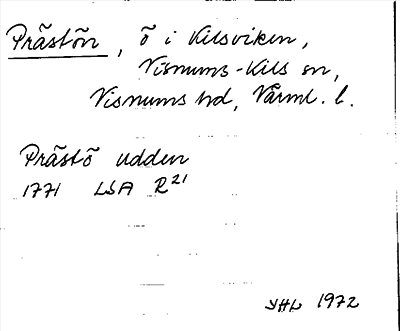 Prästön, ö i Kilsviken,
Visnums-Kils sn,
Visnums hd, Värml. l.
Prästö udden
1771 LSA R21
YHL 1972